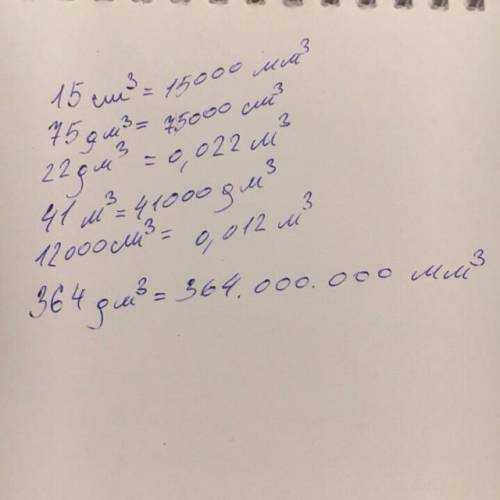 15 см³ = 15000 мм³
75 дм³ = 75000 см³
22 дм³ = 0,022 м³
41 м³ = 41000 дм³
12000 см³ = 0,012 м³
364 дм³ = 364.000.000 мм³